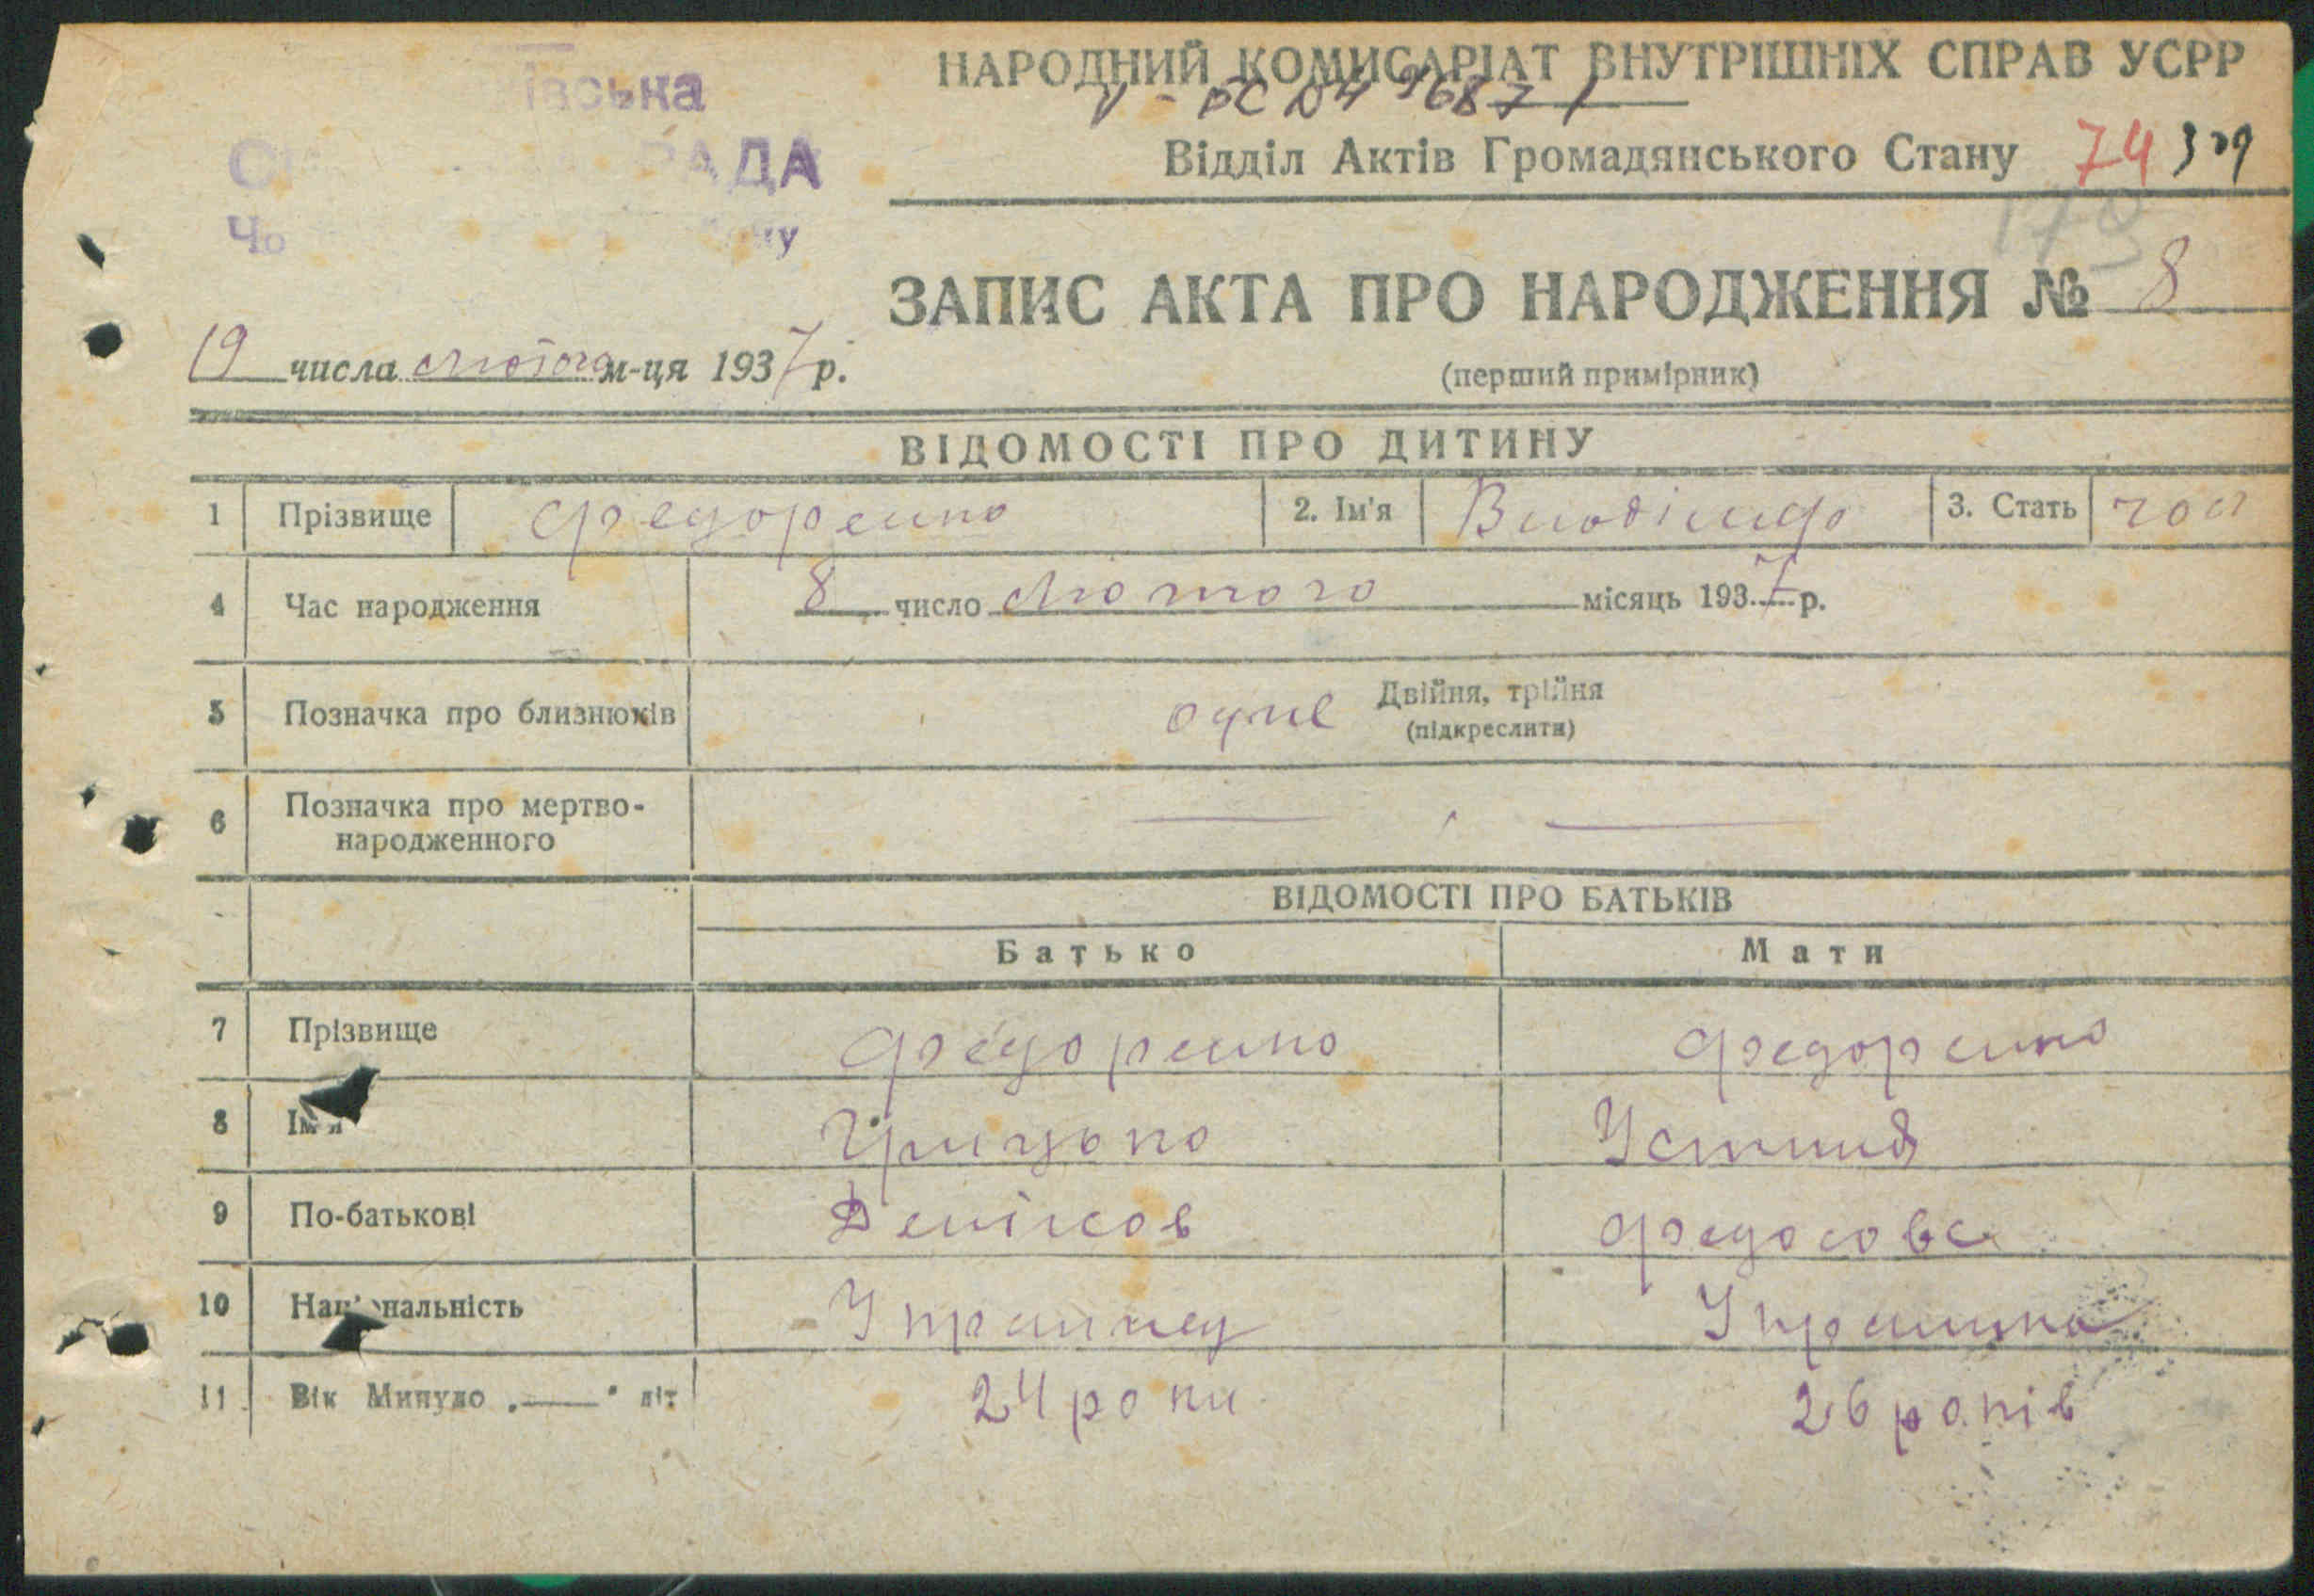 івська
РАДА
НАРОДНИЙ КОМИСАРІАТ ВНУТРІШНІХ СПРАВ УСРР
Відділ Актів Громадянського Стану 74 329
179
ЗАПИС АКТА ПРО НАРОДЖЕННЯ № 8
(перший примірник)
19 числа лютого м-ця 1937 р.
ВІДОМОСТІ ПРО ДИТИНУ
1 Прізвище Федоренко 2. Ім'я 3. Стать чол
4 Час народження 8 число Лютого місяць 1937 р.
5 Позначка про близнюків одне Двійня, трійня
(підкреслити)
6 Позначка про мертво-
народженного
ВІДОМОСТІ ПРО БАТЬКІВ
Батько Мати
7 Прізвище Федоренко Федоренко
8 Ім'я Грицько Устина
9 По-батькові Денісов Федосовс
10 Національність Українец Українка
11 Вік Минуло „—“ літ 24 роки 26 років